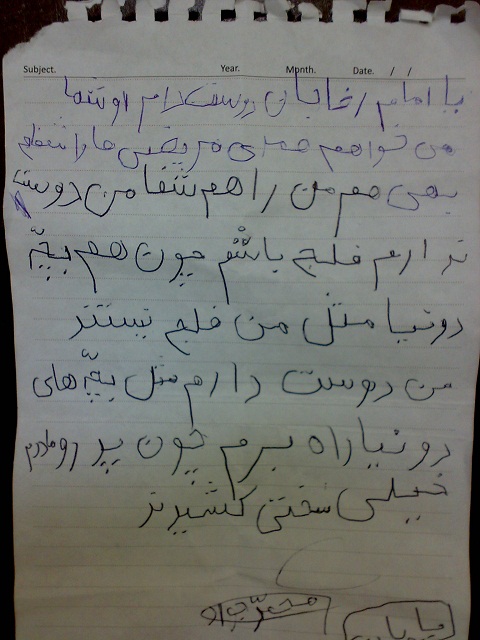 Subject. Year. Month. Date. / /
یا امام رضا جان دوست دارم از شما
می خواهم همه ی مریض ها را شفا
بدهی هم من را هم شفا من دوست
ندارم فلج باشم چون هم بچّه
دونیا مثل من فلج نیستتند
من دوست دارم مثل بچّه های
دونیا راه برم چون پدر و مادرم
خیلی سختی کشیدند